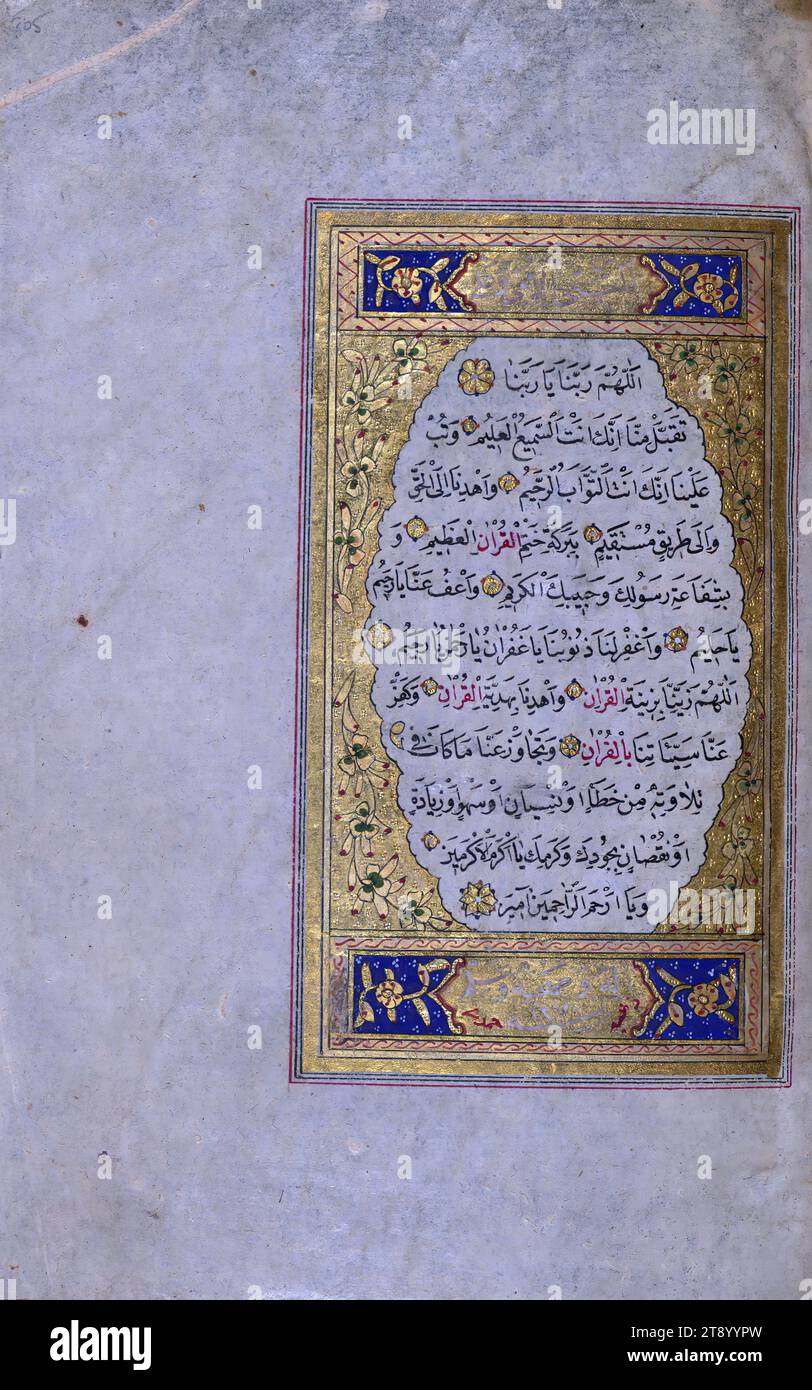 اَللّٰهُمَّ رَبَّنَا يَا رَبَّنَا
تَقَبَّلْ مِنَّا اِنَّكَ اَنْتَ السَّمِيعُ الْعَلِيمُ وَتُبْ
عَلَيْنَا اِنَّكَ اَنْتَ التَّوَّابُ الرَّحِيمُ وَاهْدِنَا اِلَى الْحَقِّ
وَاِلٰى طَرِيقٍ مُسْتَقِيمٍ بِبَرَكَةِ خَتْمِ الْقُرْاٰنِ الْعَظِيمِ وَ
بِشَفَاعَةِ رَسُولِكَ وَحَبِيبِكَ الْكَرِيمِ وَاعْفُ عَنَّا يَا رَحِيمُ
يَا حَلِيمُ وَاغْفِرْ لَنَا ذُنُوبَنَا يَا غُفْرَانُ يَا رَحْمٰنُ يَا رَحِيمُ
اَللّٰهُمَّ زَيِّنَّا بِزِينَةِ الْقُرْاٰنِ وَاهْدِنَا بِهَدِيَّةِ الْقُرْاٰنِ وَكَفِّرْ
عَنَّا سَيِّئَاتِنَا بِالْقُرْاٰنِ وَتَجَاوَزْ عَنَّا مَا كَانَ فِي
تِلَاوَتِهِ مِنْ خَطَاءٍ اَوْ نِسْيَانٍ اَوْ سَهْوٍ اَوْ زِيَادَةٍ
اَوْ نُقْصَانٍ بِجُودِكَ وَكَرَمِكَ يَا اَكْرَمَ الْاَكْرَمِينَ
وَيَا اَرْحَمَ الرَّاحِمِينَ اٰمِينَ
alamy
alamy
Image ID: 2T8YYPW
www.alamy.com